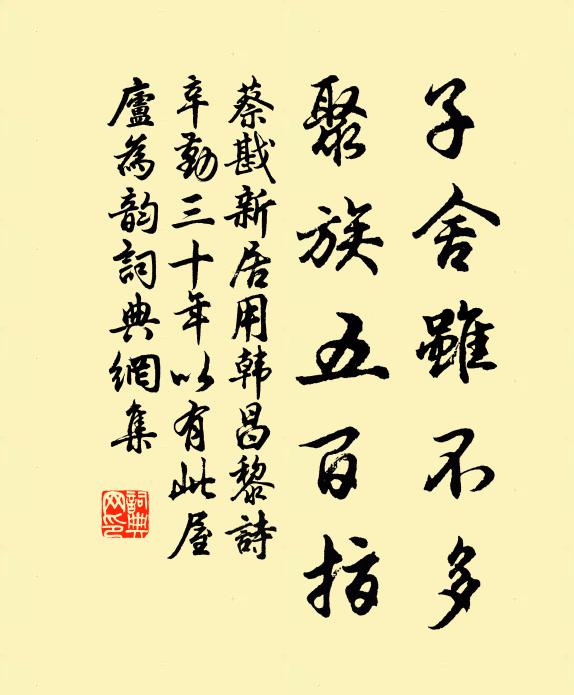 子舍雖不多
聚族五百指
蔡戡新居用韩昌黎詩
辛勤三十年以有此屋
廬為韵詞典網集
詞典
网印